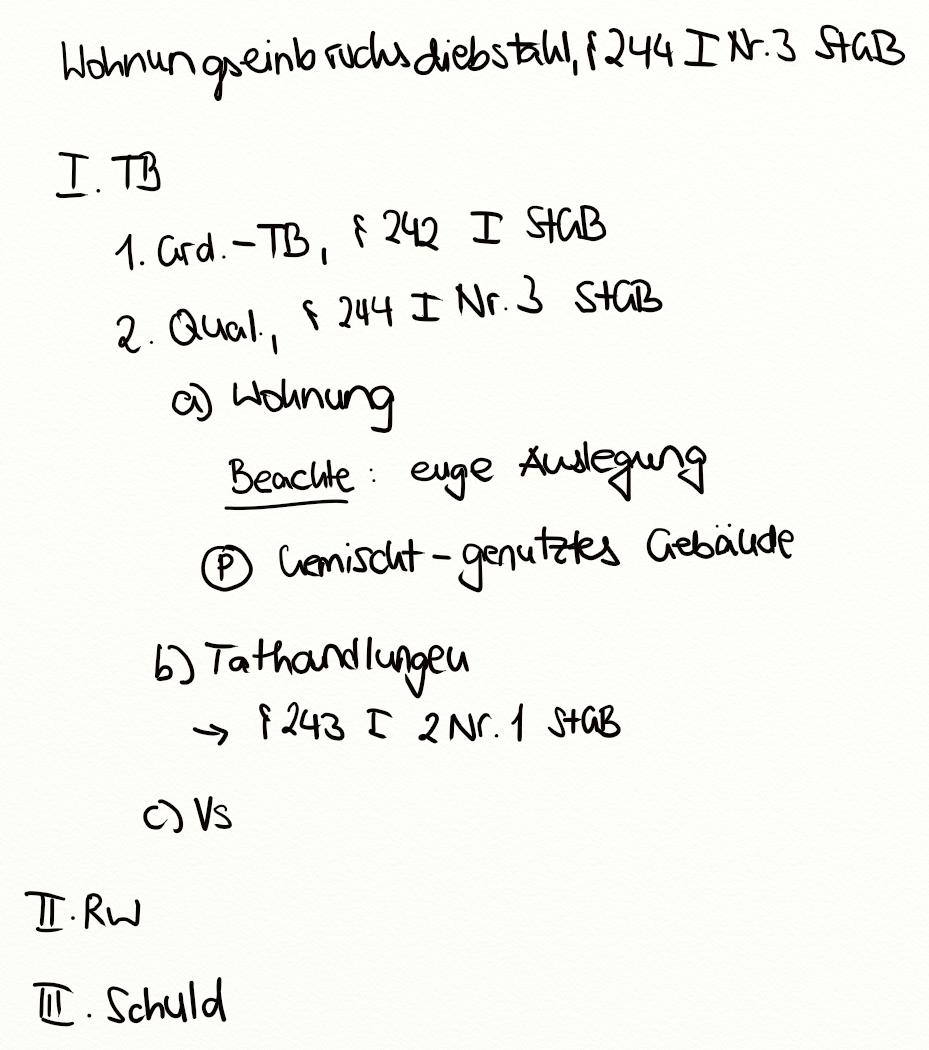 Wohnungseinbruchsdiebstahl, § 244 I Nr. 3 StGB
I. TB
1. Grd.-TB, § 242 I StGB
2. Qual., § 244 I Nr. 3 StGB
a) Wohnung
Beachte: enge Auslegung
Ⓟ Gemischt-genutztes Gebäude
b) Tathandlungen
→ § 243 I 2 Nr. 1 StGB
c) Vs
II. RW
III. Schuld